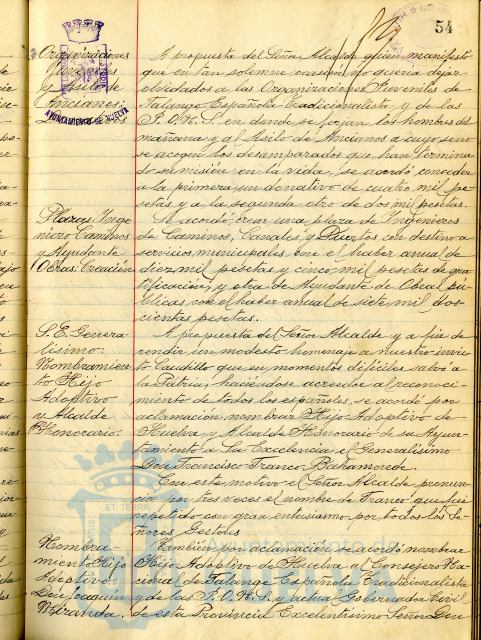 54
Organizaciones
Juveniles
y Asilo de
Ancianos:
AYUNTAMIENTO DE HUELVA
A propuesta del Señor Alcalde quien manifestó
que en tan solemne ocasión no quería dejar
olvidados a las Organizaciones Juveniles de
Falange Española Tradicionalista y de las
J.O.N.S. en donde se forjan los hombres del
mañana y al Asilo de Ancianos a cuyo seno
se acogen los desamparados que han termina
do su misión en la vida, se acordó conceder
a la primera un donativo de cuatro mil pe
setas y a la segunda otro de dos mil pesetas.
Plazas Inge
niero Caminos
y Ayudante
Obras: Creación
Se acordó crear una plaza de Ingenieros
de Caminos, Canales y Puertos con destino a
servicios municipales con el haber anual de
diez mil pesetas y cinco mil pesetas de gra
tificación, y otra de Ayudante de Obras pú
blicas con el haber anual de siete mil dos
cientas pesetas.
S. E. Genera
lísimo:
Nombramien
to Hijo
Adoptivo
y Alcalde
Honorario.
A propuesta del Señor Alcalde y a fin de
rendir un modesto homenaje a nuestro invic
to Caudillo que en momentos difíciles salvó a
la Patria, haciéndose acreedor al reconoci
miento de todos los españoles, se acordó por
aclamación nombrar Hijo Adoptivo de
Huelva y Alcalde Honorario de su Ayun
tamiento a Su Excelencia el Generalísimo
Don Francisco Franco Bahamonde.
Con este motivo el Señor Alcalde pronun
cia por tres veces el nombre de Franco que fué
repetido con gran entusiasmo por todos los Se
ñores Gestores
Nombra
miento Hijo
Adoptivo
Don Joaquín
Miranda.
También por aclamación se acordó nombrar
Hijo Adoptivo de Huelva al Consejero Na
cional de Falange Española Tradicionalista
y de las J.O.N.S. y actual Gobernador Civil
de esta Provincia Excelentísimo Señor Don
ET TERRA
Ayuntamiento de